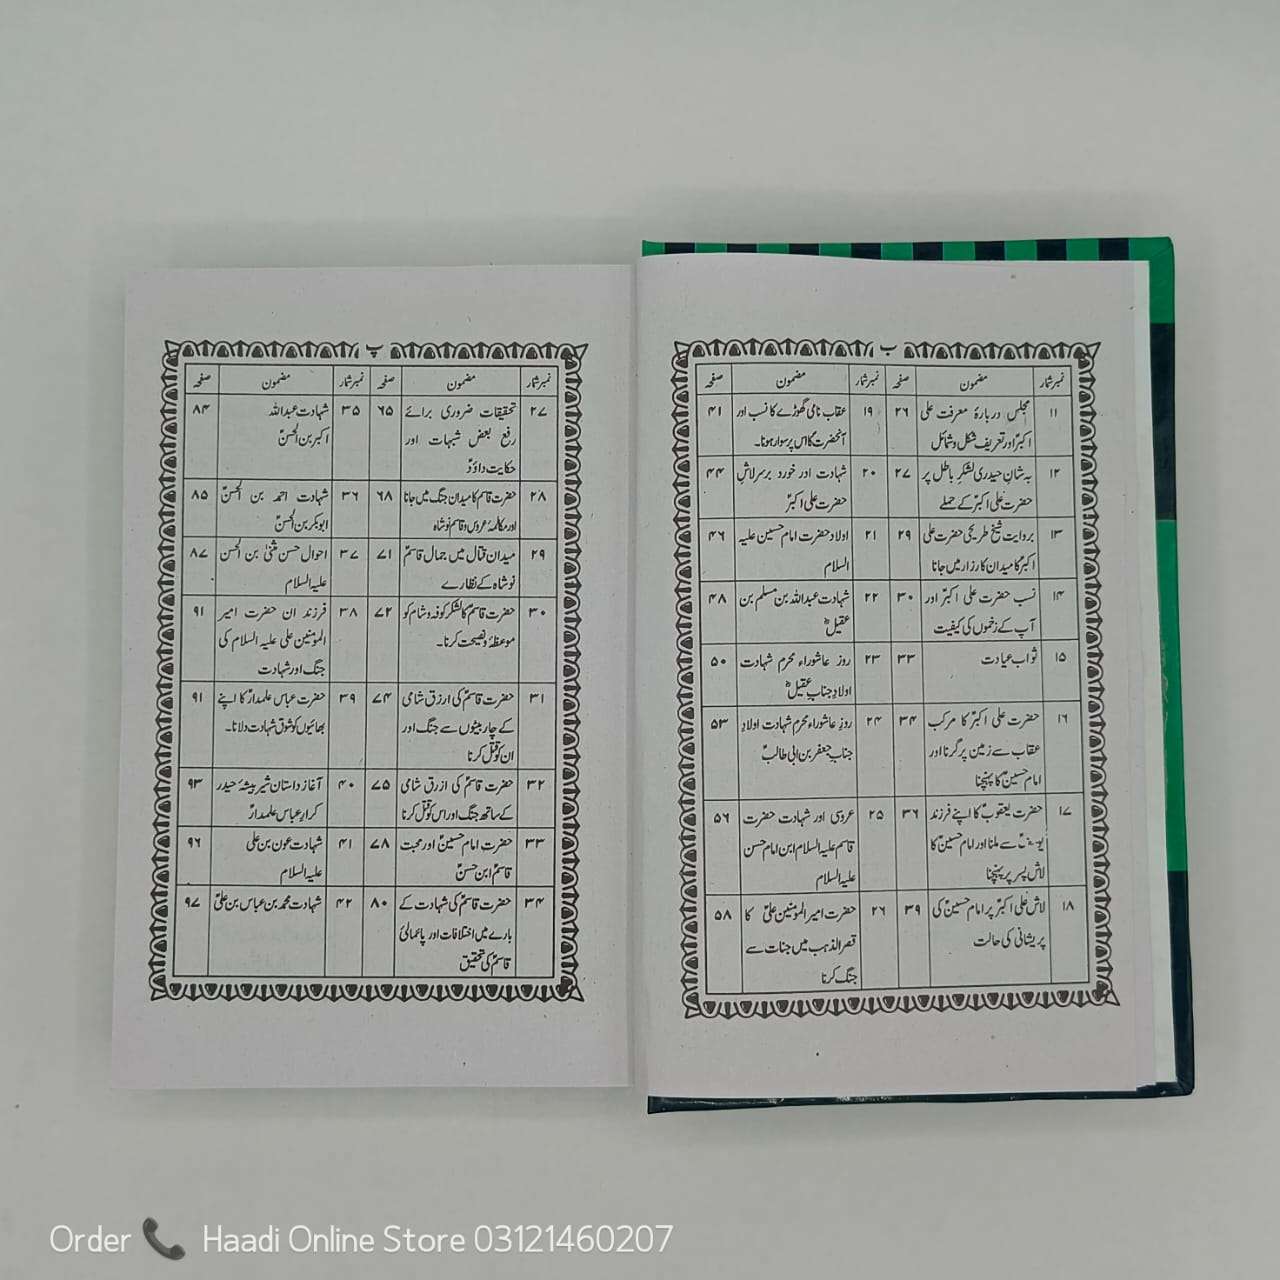 ب
نمبر شمار مضمون صفحہ نمبر شمار مضمون صفحہ
۱۱ مجلس دربارۂ معرفت علی ۲۶
اکبرؑ اور تعریف شکل و شمائل
۱۲ بہ شانِ حیدری لشکرِ باطل پر ۲۷
حضرت علی اکبرؑ کے حملے
۱۳ بروایت شیخ طریحی حضرت علی ۲۹
اکبرؑ کا میدان کارزار میں جانا
۱۴ نسب حضرت علی اکبرؑ اور ۳۰
آپ کے زخموں کی کیفیت
۱۵ ثواب عیادت ۳۳
۱۶ حضرت علی اکبرؑ کا مرکب ۳۴
عقاب سے زمین پر گرنا اور
امام حسینؑ کا پہنچنا
۱۷ حضرت یعقوبؑ کا اپنے فرزند ۳۶
سے ملنا اور امام حسینؑ کا
لاش پسر پر پہنچنا
۱۸ لاش علی اکبرؑ پر امام حسینؑ کی ۳۹
پریشانی کی حالت
۱۹ عقاب نامی گھوڑے کا نسب اور ۴۱
آنحضرتؐ کا اس پر سوار ہونا۔
۲۰ شہادت اور خورد برسر لاشِ ۴۴
حضرت علی اکبرؑ
۲۱ اولاد حضرت امام حسین علیہ ۴۶
السلام
۲۲ شہادت عبداللہ بن مسلم بن ۴۸
عقیلؓ
۲۳ روز عاشوراء محرم شہادت ۵۰
اولادِ جناب عقیلؓ
۲۴ روزِ عاشوراء محرم شہادت اولادِ ۵۳
جناب جعفر بن ابی طالبؑ
۲۵ عروسی اور شہادت حضرت ۵۶
قاسم علیہ السلام ابن امام حسن
علیہ السلام
۲۶ حضرت امیر المومنین علیؑ کا ۵۸
قصر الذہب میں جنات سے
جنگ کرنا
پ
نمبر شمار مضمون صفحہ نمبر شمار مضمون صفحہ
۲۷ تحقیقات ضروری برائے ۶۵
رفع بعض شبہات اور
حکایت داؤدؑ
۲۸ حضرت قاسمؑ کا میدان جنگ میں جانا ۶۸
اور مکالمۂ عروس و قاسم نوشاہ
۲۹ میدان قتال میں جمال قاسمؑ ۷۱
نوشاہ کے نظارے
۳۰ حضرت قاسمؑ کا لشکر کوفہ و شام کو ۷۲
موعظۂ و نصیحت کرنا۔
۳۱ حضرت قاسمؑ کی ارزق شامی ۷۴
کے چار بیٹوں سے جنگ اور
ان کو قتل کرنا
۳۲ حضرت قاسمؑ کی ازرق شامی ۷۵
کے ساتھ جنگ اور اس کو قتل کرنا
۳۳ حضرت امام حسینؑ اور محبت ۷۸
قاسمؑ ابن حسنؑ
۳۴ حضرت قاسمؑ کی شہادت کے ۸۰
بارے میں اختلافات اور پائمالئ
قاسمؑ کی تحقیق
۳۵ شہادت عبداللہ ۸۴
اکبر بن الحسنؑ
۳۶ شہادت احمد بن الحسنؑ ۸۵
ابوبکر بن الحسنؑ
۳۷ احوال حسن مثنیٰ بن الحسن ۸۷
علیہ السلام
۳۸ فرزند ان حضرت امیر ۹۱
المومنین علی علیہ السلام کی
جنگ اور شہادت
۳۹ حضرت عباس علمدارؑ کا اپنے ۹۱
بھائیوں کو شوق شہادت دلانا۔
۴۰ آغاز داستان شیر بیشۂ حیدر ۹۳
کرار عباس علمدارؑ
۴۱ شہادت عون بن علی ۹۶
علیہ السلام
۴۲ شہادت محمد بن عباس بن علیؑ ۹۷
Order Haadi Online Store 03121460207